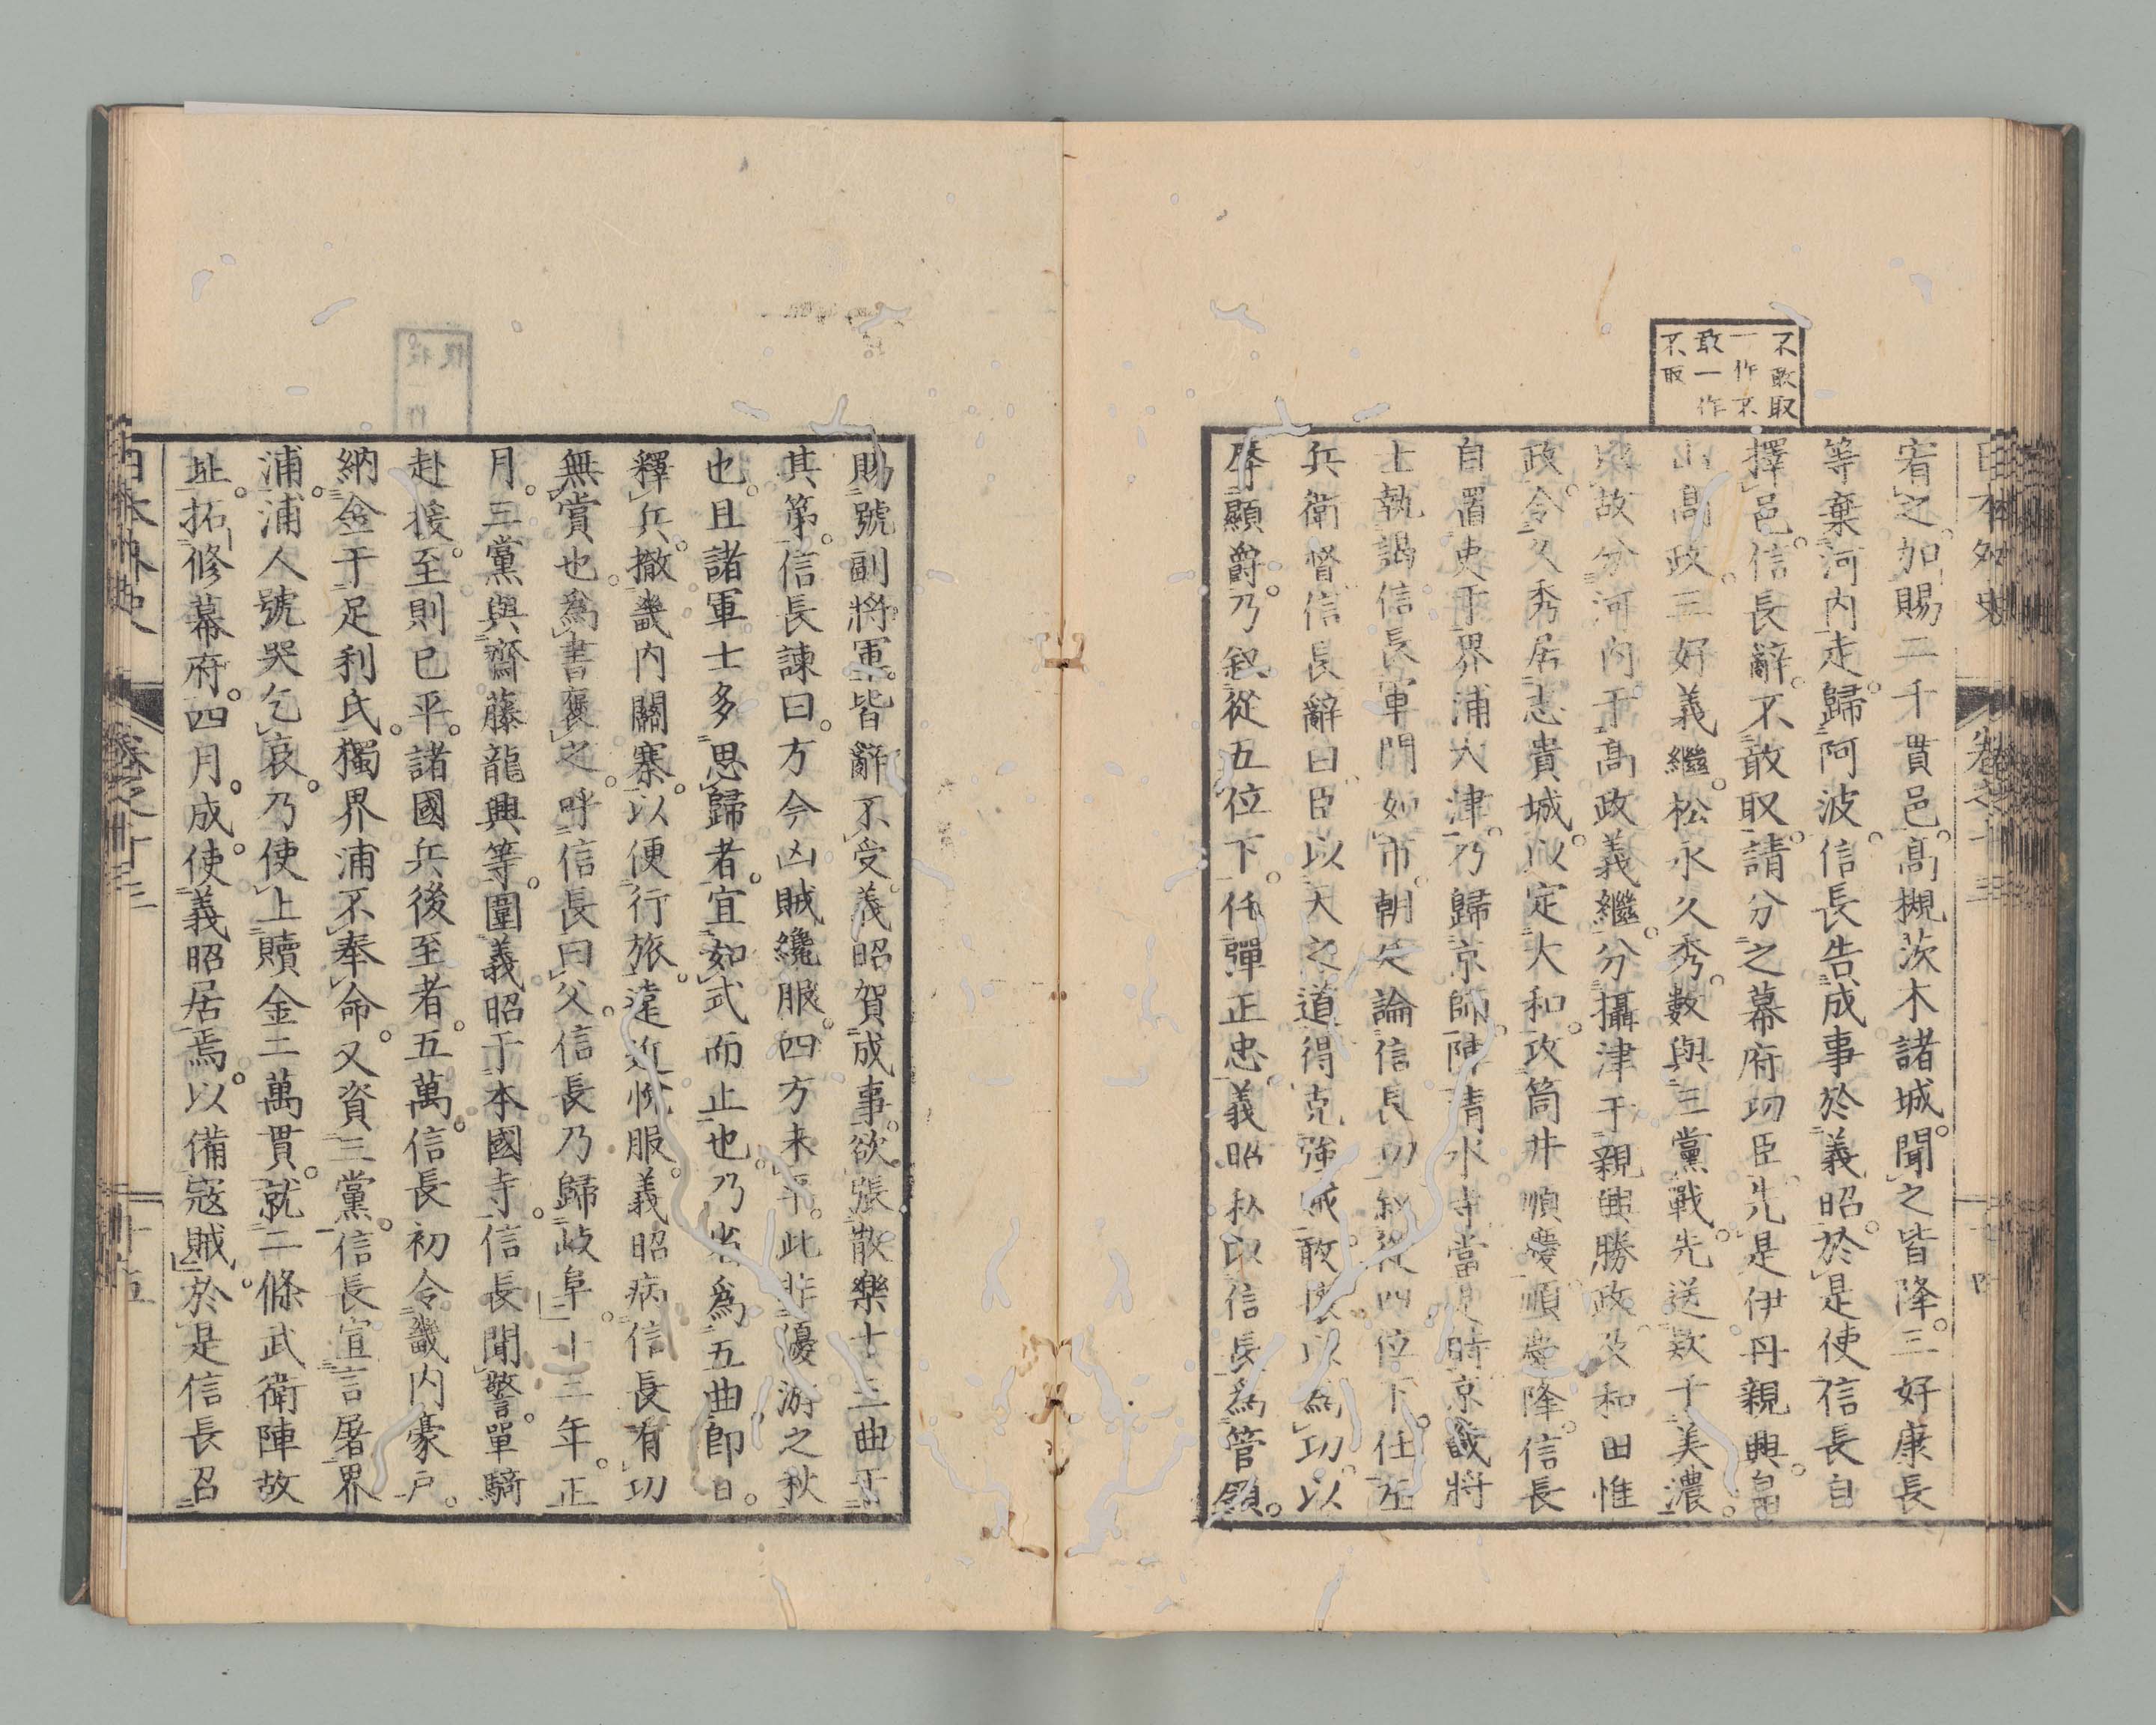 不敢取
一作不
敢一作
不取
日本外史 卷之十三
宥之。加賜二千貫邑。高槻茨木諸城。聞之皆降。三好康長
等棄河内走。歸阿波。信長告成事於義昭。於是使信長自
擇邑。信長辭。不敢取。請分之幕府功臣。先是伊丹親興。畠
山高政。三好義繼。松永久秀。數與三黨戰。先送款于美濃。
故分河内于高政義繼。分攝津于親興勝政及和田惟
政。令久秀居志貴城。以定大和。攻筒井順慶。順慶降。信長
自置吏于界浦大津。乃歸京師。陣清水寺。當是時。京畿將
士執謁信長。軍門如市。朝廷論信長功。敍從四位下。任左
兵衛督。信長辭曰。臣以天之道。得克強賊。敢懷以爲功。以
辱顯爵。乃敍從五位下。任彈正忠。義昭私以信長爲管領。
賜號副將軍。皆辭不受。義昭賀成事。欲張散樂十三曲于
其第。信長諫曰。方今凶賊纔服。四方未平。此非優游之秋
也。且諸軍士多思歸者。宜如式而止也。乃省爲五曲。即日。
釋兵。撤畿内關塞。以便行旅。遠近悅服。義昭病信長有功
無賞也。爲書褒之。呼信長曰父。信長乃歸岐阜。十三年。正
月。三黨與齋藤龍興等。圍義昭于本國寺。信長聞警。單騎
赴援。至則已平。諸國兵後至者。五萬。信長初令畿内豪戶。
納金于足利氏。獨界浦不奉命。又資三黨。信長宣言屠界
浦。浦人號哭乞哀。乃使上贖金二萬貫。就二條武衛陣故
址。拓修幕府。四月成。使義昭居焉。以備寇賊。於是信長召
日本外史 卷之十三 十五